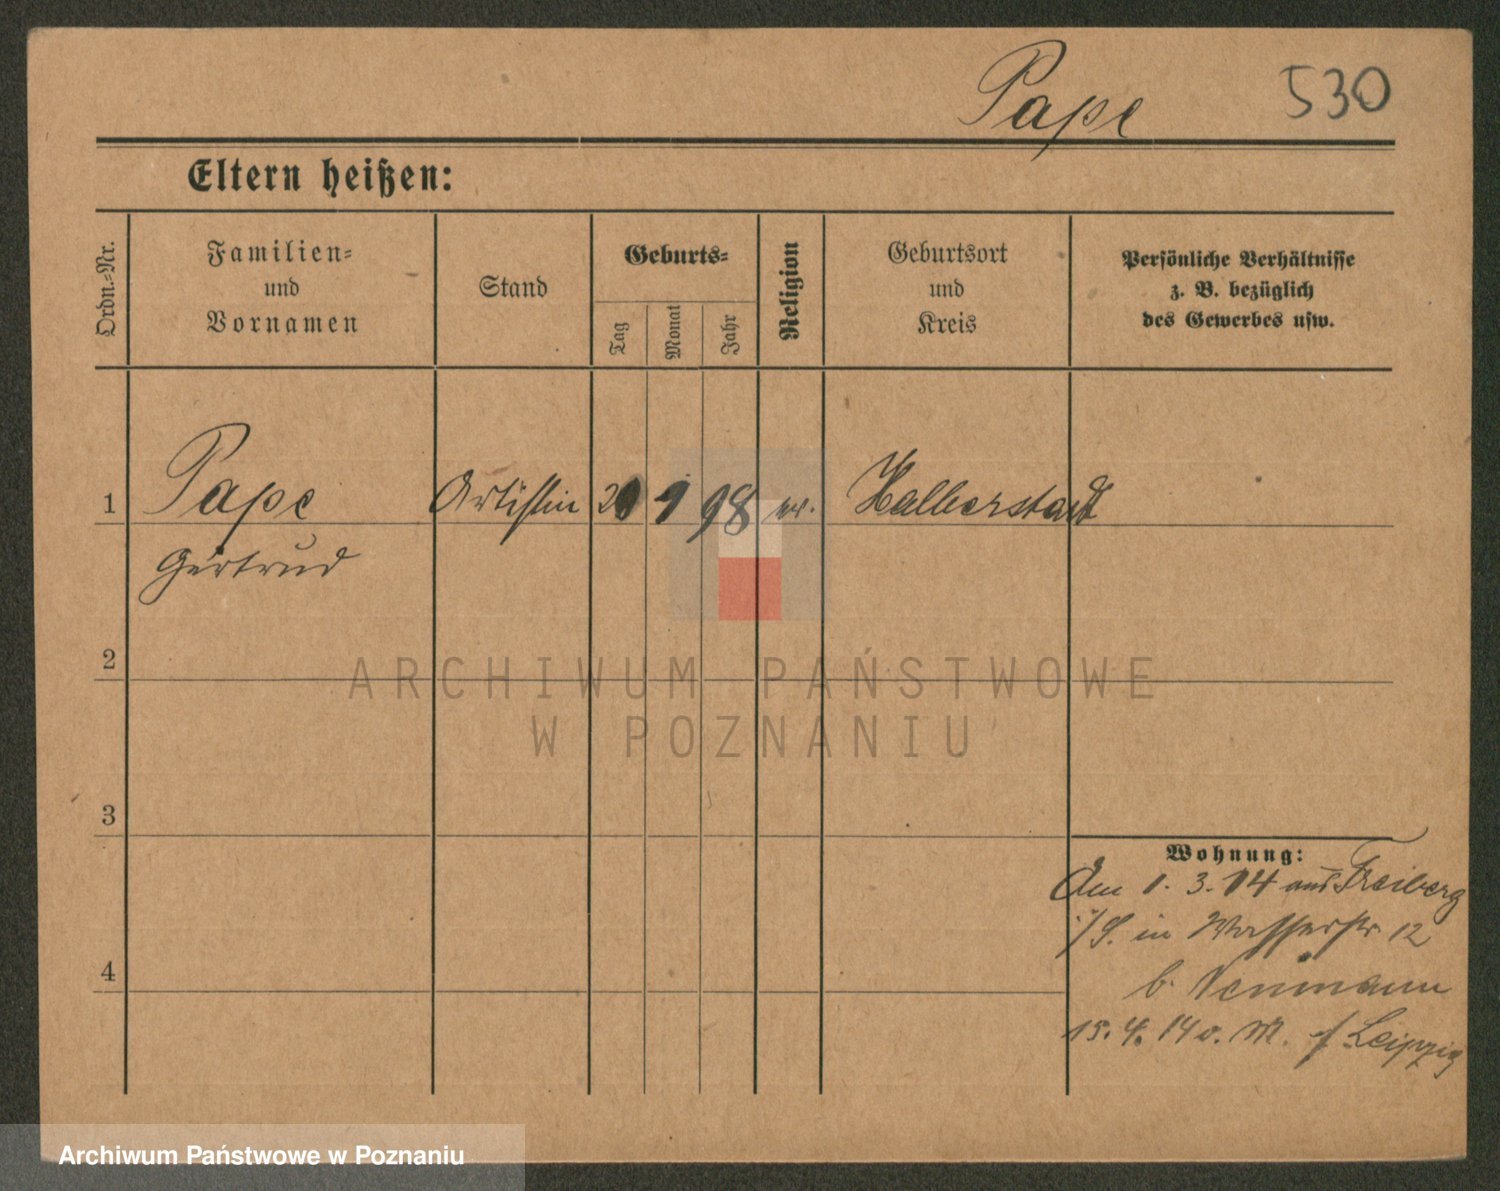 Pape 530
Eltern heißen:
Ordn.-Nr.
Familien-
und
Vornamen
Stand
Geburts-
Tag
Monat
Jahr
Religion
Geburtsort
und
Kreis
Persönliche Verhältnisse
z. B. bezüglich
des Gewerbes usw.
1 Pape Artistin 9 98 ev. Halberstadt
Gertrud
2
3
4
Wohnung:
Am 1. 3. 14 aus Freiberg
i/S. in Wasserstr 12
b.
15. 4. 14 v. M. Leipzig
ARCHIWUM PAŃSTWOWE
W POZNANIU
Archiwum Państwowe w Poznaniu